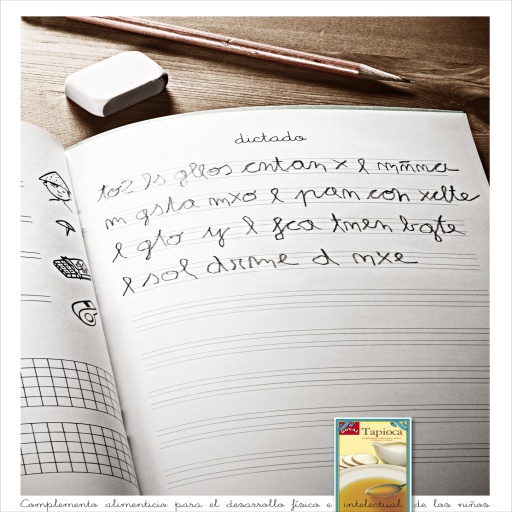 dictado
to2 ls gllos cntan x l mñna
m gsta mxo l pan con xclte
l gto y l fca tnen bgte
l sol drme d nxe
ROYAL
Tapioca
Complemento alimenticio para el desarrollo físico e intelectual de los niños